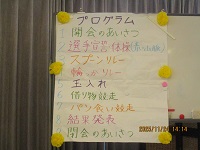 プログラム
開会のあいさつ
選手宣誓・体操
スプーンリレー
輪っかリレー
玉入れ
借り物競走
パン食い競走
結果発表
閉会のあいさつ
2025/11/04 14:14